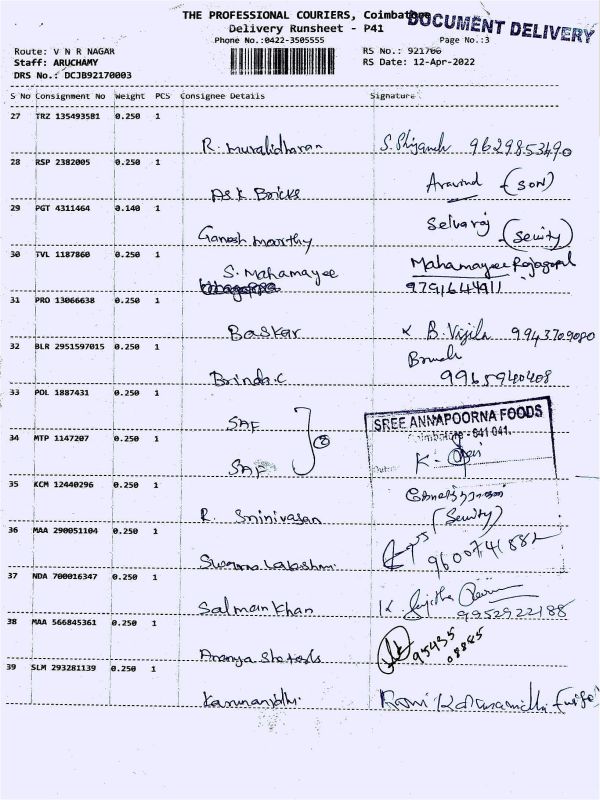 THE PROFESSIONAL COURIERS, Coimbatore
DOCUMENT DELIVERY
Delivery Runsheet - P41
Phone No.:0422-3505555
Page No.:3
Route: V N R NAGAR
RS No.: 921766
Staff: ARUCHAMY
RS Date: 12-Apr-2022
DRS No.: DCJB92170003
S No Consignment No Weight PCS Consignee Details Signature
27 TRZ 135493581 0.250 1
R. Muralidharan 9629853490
28 RSP 2382005 0.250 1
ASK Bricks Aravind (SON)
29 PGT 4311464 0.140 1
Ganesh moorthy Selvaraj (Seurity)
30 TVL 1187860 0.250 1
S. Mahamayee Mahamayee Rajagopal
9791644911
31 PRO 13066638 0.250 1
Baskar B. Vijila 9943709080
32 BLR 2951597015 0.250 1
Brinda.C 9965940408
33 POL 1887431 0.250 1
SAF
SREE ANNAPOORNA FOODS
Coimbatore - 641 041.
34 MTP 1147207 0.250 1
SAF
35 KCM 12440296 0.250 1
R. Sninivasan (Seurity)
36 MAA 290051104 0.250 1
9600741882
37 NDA 700016347 0.250 1
Salman Khan 9952922188
38 MAA 566845361 0.250 1
95435
08885
39 SLM 293281139 0.250 1